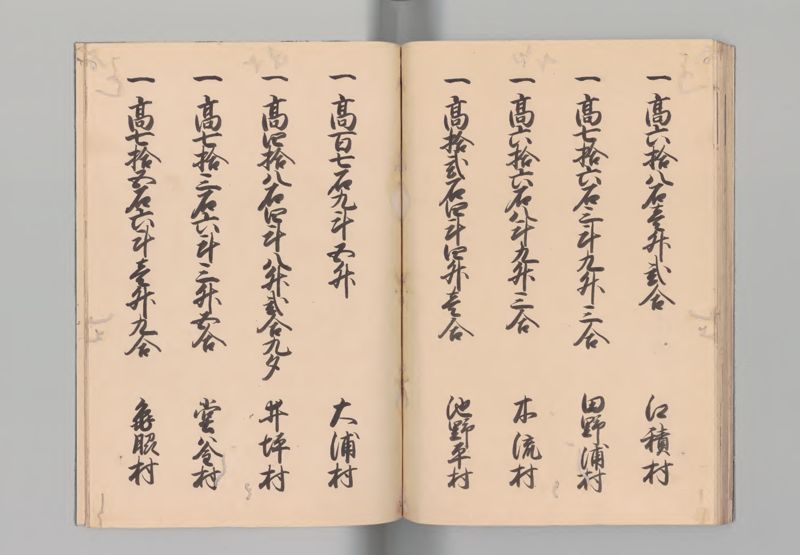 一 高六拾八石壱升弐合 江積村
一 高七拾六石三斗九升三合 田野浦村
一 高六拾六石八斗九升三合 木流村
一 高拾弐石四斗四升壱合 池野平村
一 高百七石九斗五升 大浦村
一 高四拾八石四斗八升弐合九夕 井坪村
一 高七拾三石六斗三升五合 堂釜村
一 高七拾五石六斗壱升九合 村